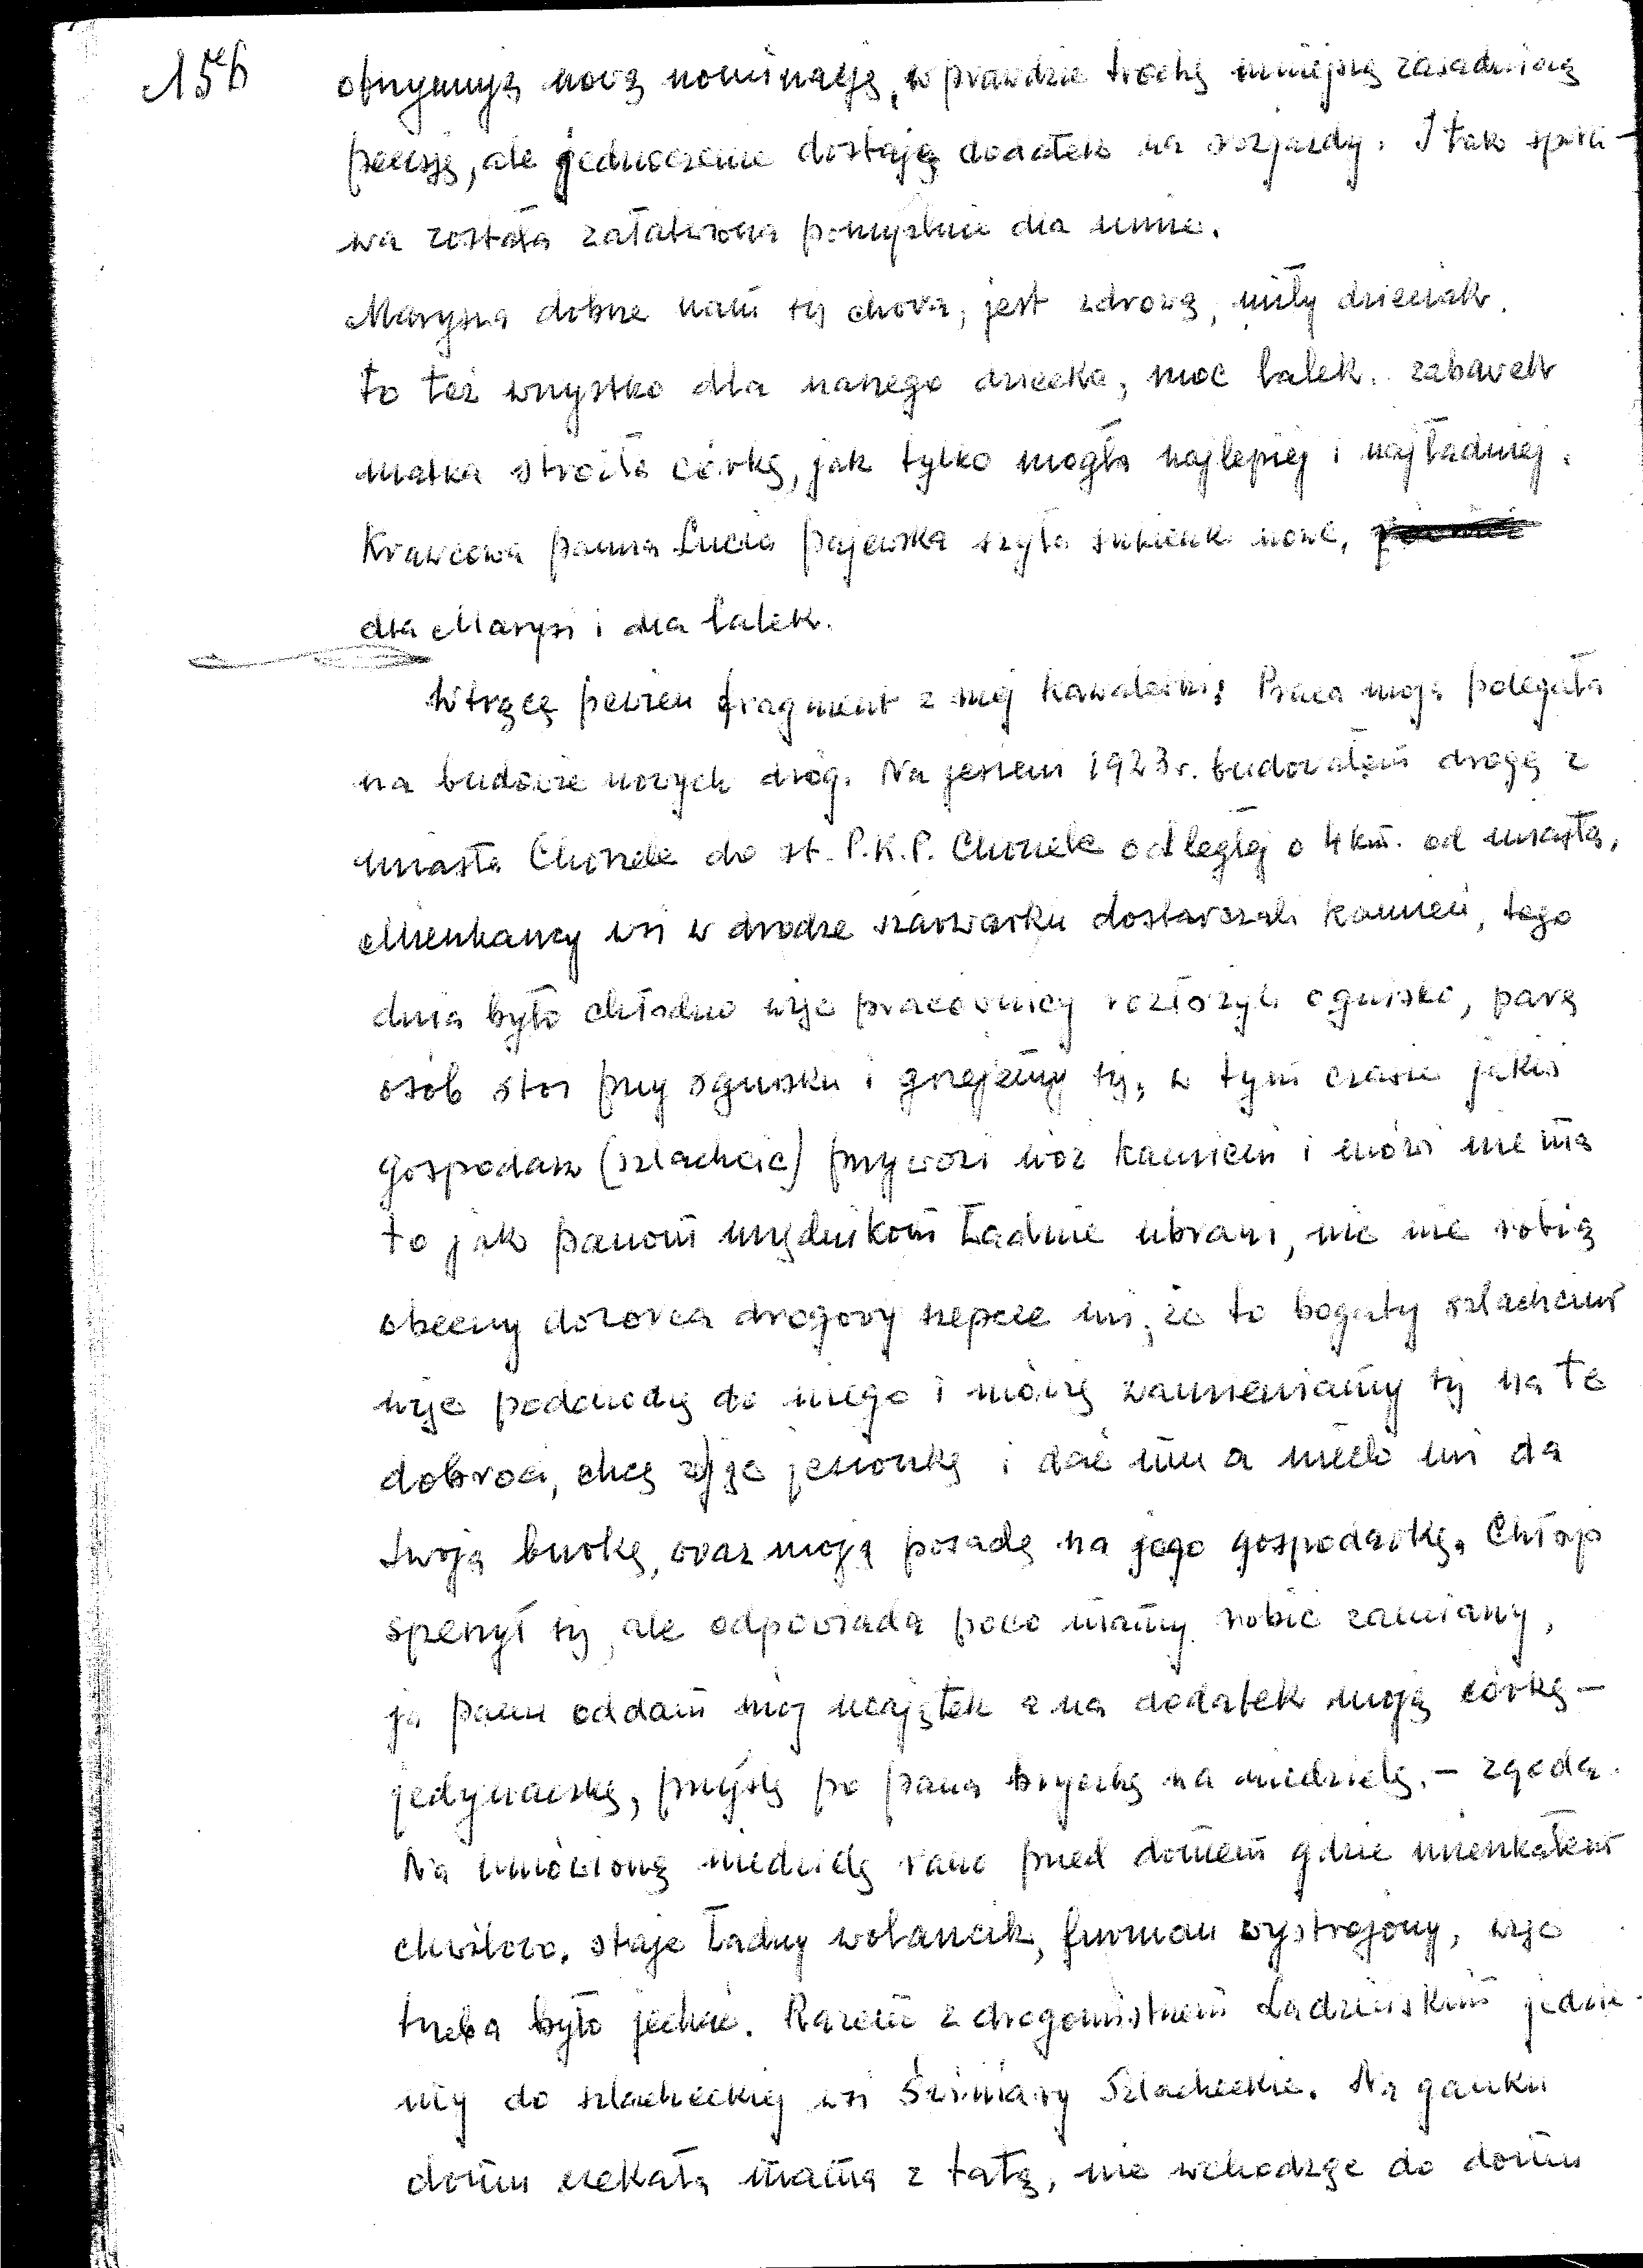 156
otrzymuję nową nominację, wprawdzie trochę mniejszą zasadniczą
pensję, ale jednocześnie dostają dodatek na rozjazdy. I tak spra-
wa została załatwiona pomyślnie dla mnie.
Marysia dobrze nam się chowa, jest zdrową, miły dzieciak.
to też wszystko dla naszego dziecka, moc lalek, zabawek
matka stroiła córkę, jak tylko mogła najlepiej i najładniej.
Krawcowa panna Lucia Pajewska szyła sukienki nowe,
dla Marysi i dla lalek.
Wtrącę pewien fragment z mej kawalerki; Praca moja polegała
na budowie nowych dróg. Na jesieni 1923 r. budowałem drogę z
miasta Chorzele do st. P.K.P. Chorzele odległej o 4 km. od miasta,
Mieszkańcy wsi w drodze szarwarku dostarczali kamień, tego
dnia było chłodno więc pracownicy rozłożyli ognisko, parę
osób stoi przy ognisku i grzejemy się, w tym czasie jakiś
gospodarz (szlachcic) przywozi wóz kamieni i mówi nie ma
to jak panom urzędnikom ładnie ubrani, nic nie robią
obecny dozorca drogowy szepcze mi, że to bogaty szlachciur
więc podchodzę do niego i mówię zamieniamy się na te
dobroci, chcę zdjąć jesionkę i dać mu a niech mi da
swoją burkę, oraz moją posadę na jego gospodarkę. Chłop
speszył się, ale odpowiada poco mamy robić zamiany,
ja panu oddam mój majątek a na dodatek moją córkę -
jedynaczkę, przyślę po pana bryczkę na niedzielę. - zgoda.
Na umówioną niedzielę rano przed domem gdzie mieszkałem
chwilowo, staje ładny wolancik, furman wystrojony, więc
trzeba było jechać. Razem z drogomistrzem Ladzińskim jedzie-
my do szlacheckiej wsi Szlacheckie. Na ganku
domu czekała mama z tatą, nie wchodząc do domu